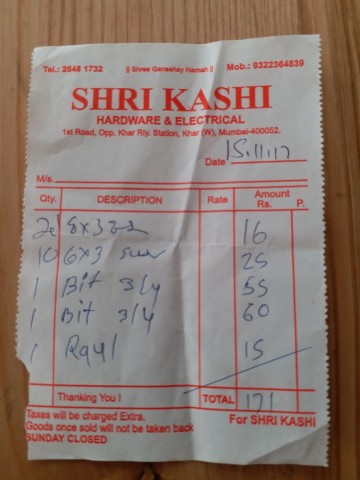 Tel.: 2648 1732 || Shree Ganeshay Namah || Mob.: 9322364839
SHRI KASHI
HARDWARE & ELECTRICAL
1st Road, Opp. Khar Rly. Station, Khar (W), Mumbai-400052.
Date 15.11.17
M/s.
Qty. DESCRIPTION Rate Amount Rs. P.
16
10 6x3 25
1 Bit 3/4 55
1 Bit 3/4 60
1 15
Thanking You ! TOTAL 171
Taxes will be charged Extra.
Goods once sold will not be taken back
SUNDAY CLOSED
For SHRI KASHI